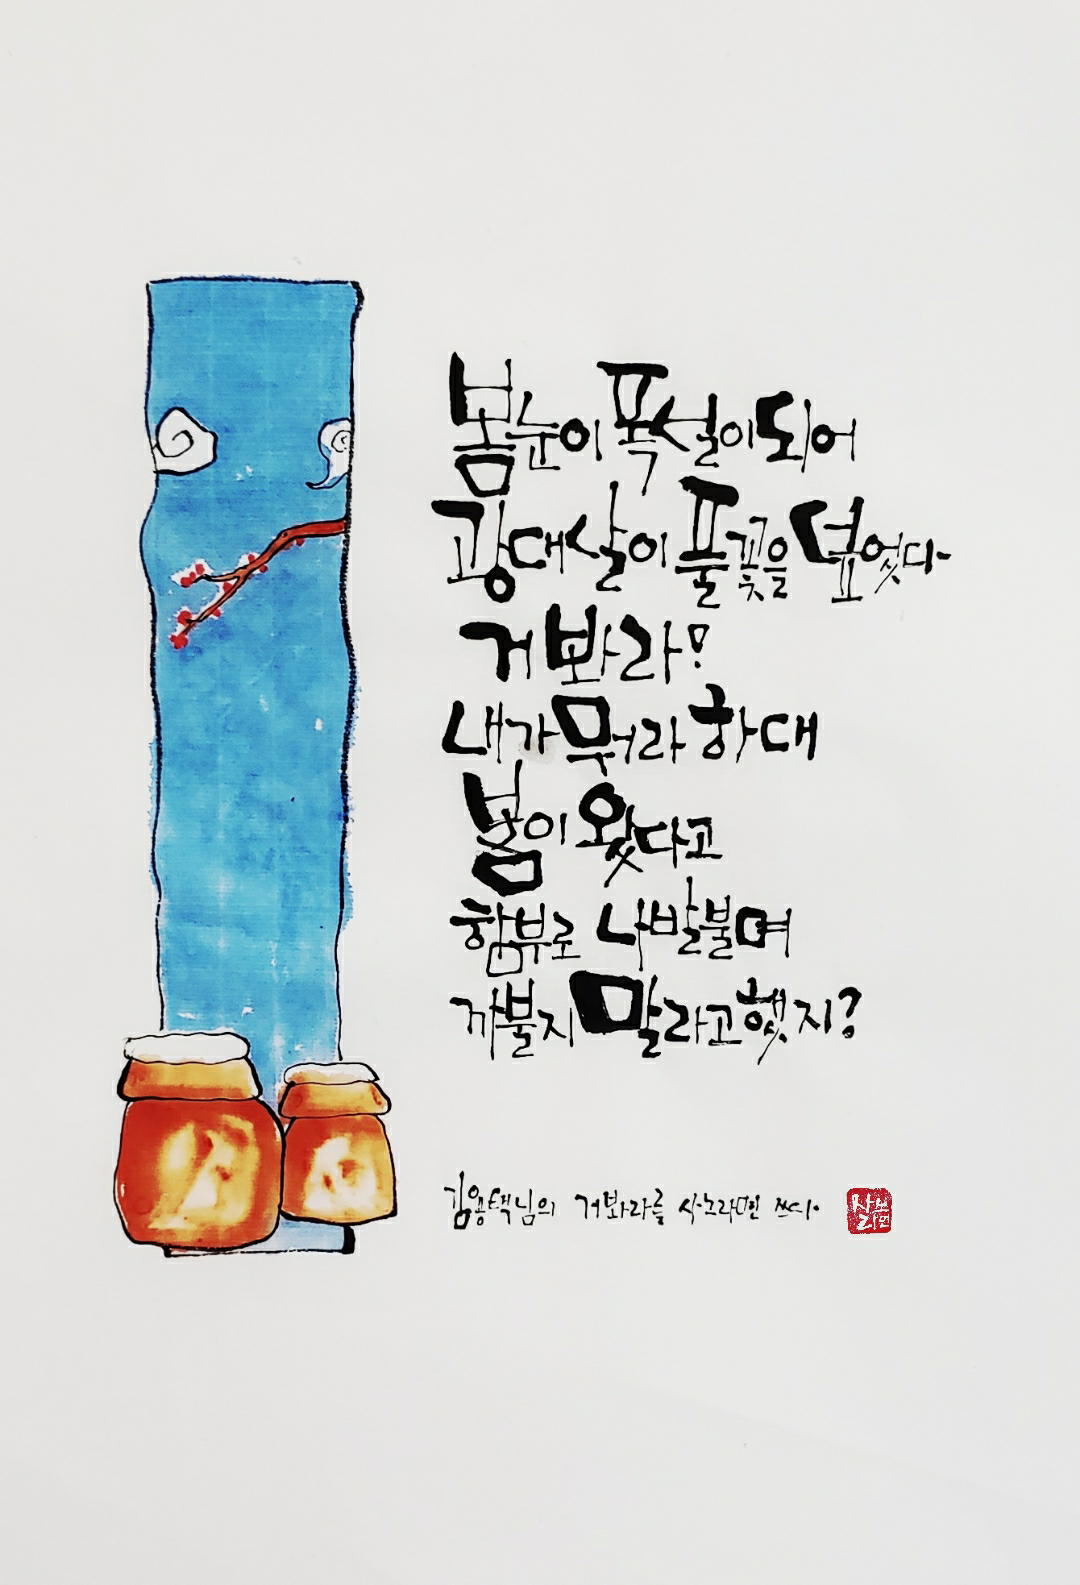 봄눈이 폭설이 되어
광대살이 풀꽃을 덮었다
거봐라!
내가 뭐라 하대
봄이 왔다고
함부로 나발불며
까불지 말라고 했지?
김용택님의 거봐라를 쓰다.